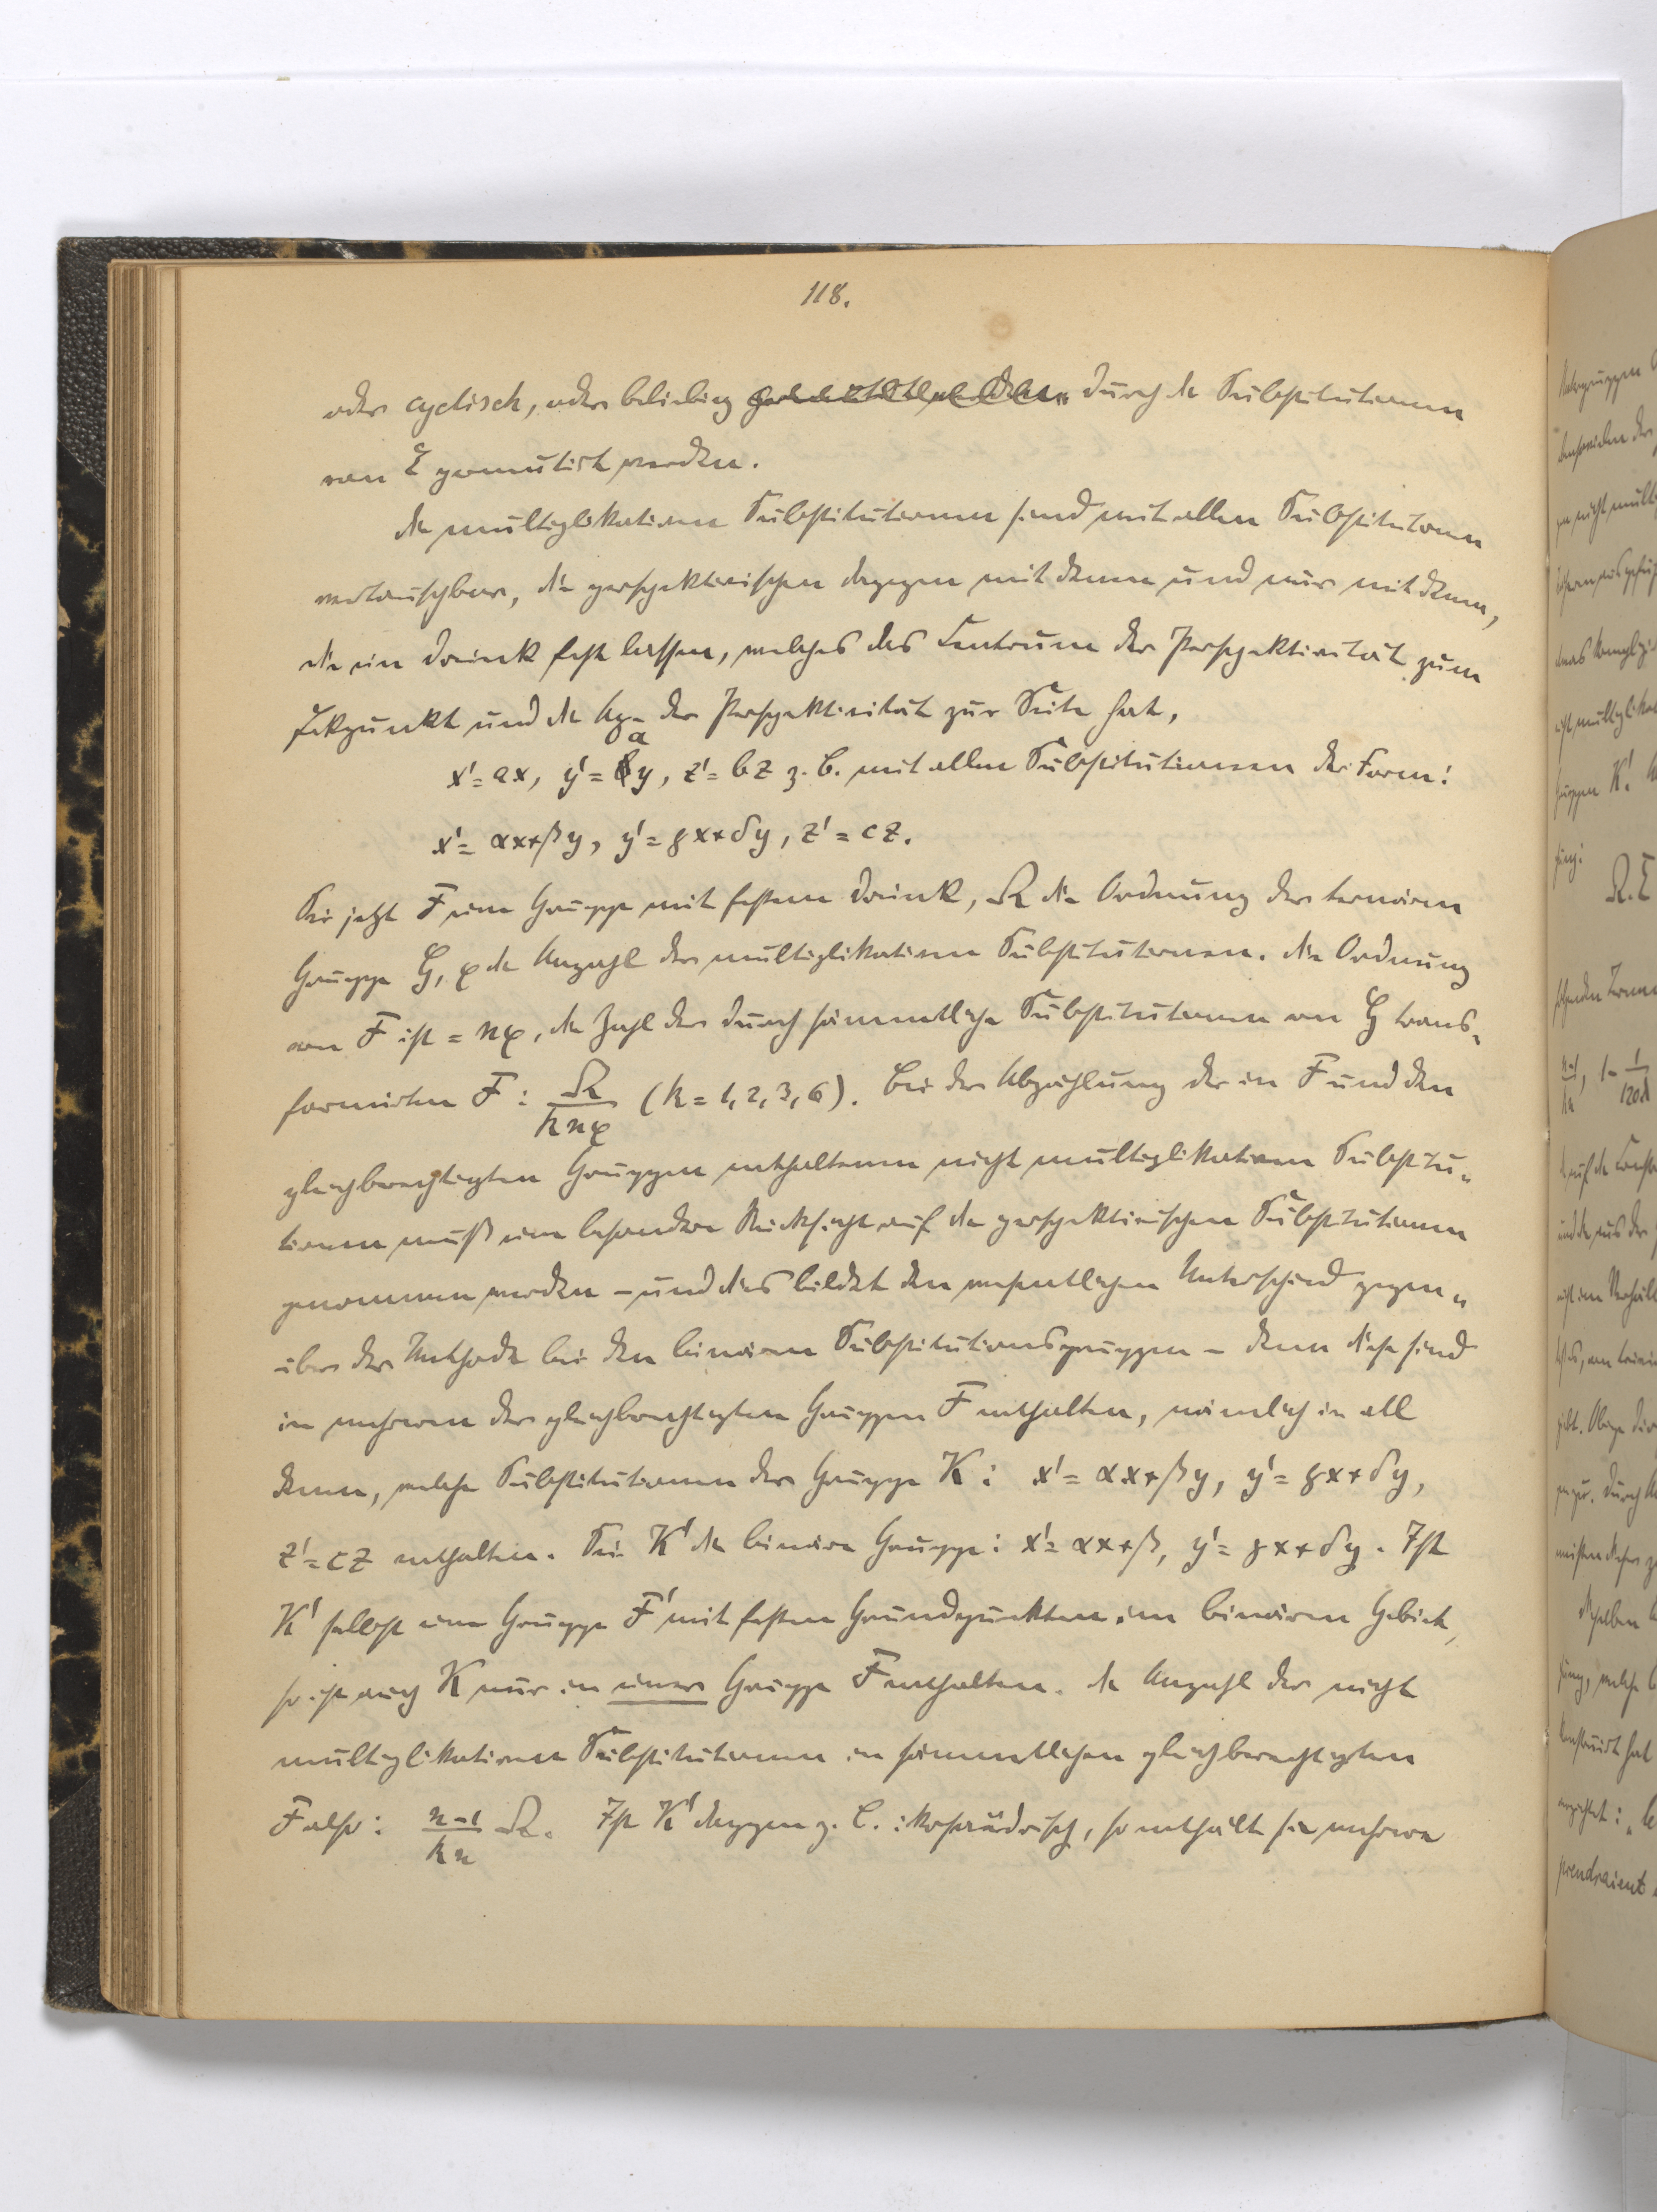 118.
oder cyclisch, oder beliebig durch die Substitutionen
von Σ permutirt werden.
Die multiplikativen Substitutionen sind mit allen Substitutionen
vertauschbar, die perspektivischen dagegen mit denen und nur mit denen,
die ein Dreieck fest lassen, welches das Centrum der Perspektivität zum
Eckpunkt und die Axe der Perspektivität zur Seite hat,
x' = ax, y' = ay, z' = bz z. B. mit allen Substitutionen der Form:
x' = αx+βy, y' = γx+δy, z' = cz.
Sei jetzt F eine Gruppe mit festem Dreieck, Ω die Ordnung der ternären
Gruppe G, φ die Anzahl der multiplikativen Substitutionen. Die Ordnung
von F ist = nφ, die Zahl der durch sämmtliche Substitutionen von G trans-
formirten F: Ω/knφ (k = 1, 2, 3, 6). Bei der Abzählung der in F und den
gleichberechtigten Gruppen enthaltenen nicht multiplikativen Substitu-
tionen muß eine besondere Rücksicht auf die perspektivischen Substitutionen
genommen werden – und dies bildet den wesentlichen Unterschied gegen-
über der Methode bei den binären Substitutionsgruppen – denn diese sind
in mehreren der gleichberechtigten Gruppen F enthalten, nämlich in all
denen, welche Substitutionen der Gruppe K: x' = αx+βy, y' = γx+δy,
z' = cz enthalten. Sei K' die binäre Gruppe: x' = αx+β, y' = γx+δy. Ist
K' selbst eine Gruppe F' mit festen Grundpunkten im binären Gebiet,
so ist auch K nur in einer Gruppe F enthalten. Die Anzahl der nicht
multiplikativen Substitutionen in sämmtlichen gleichberechtigten
F also: n-1/kn Ω. Ist K' dagegen z. B. ikosaëdrisch, so enthält sie mehrere